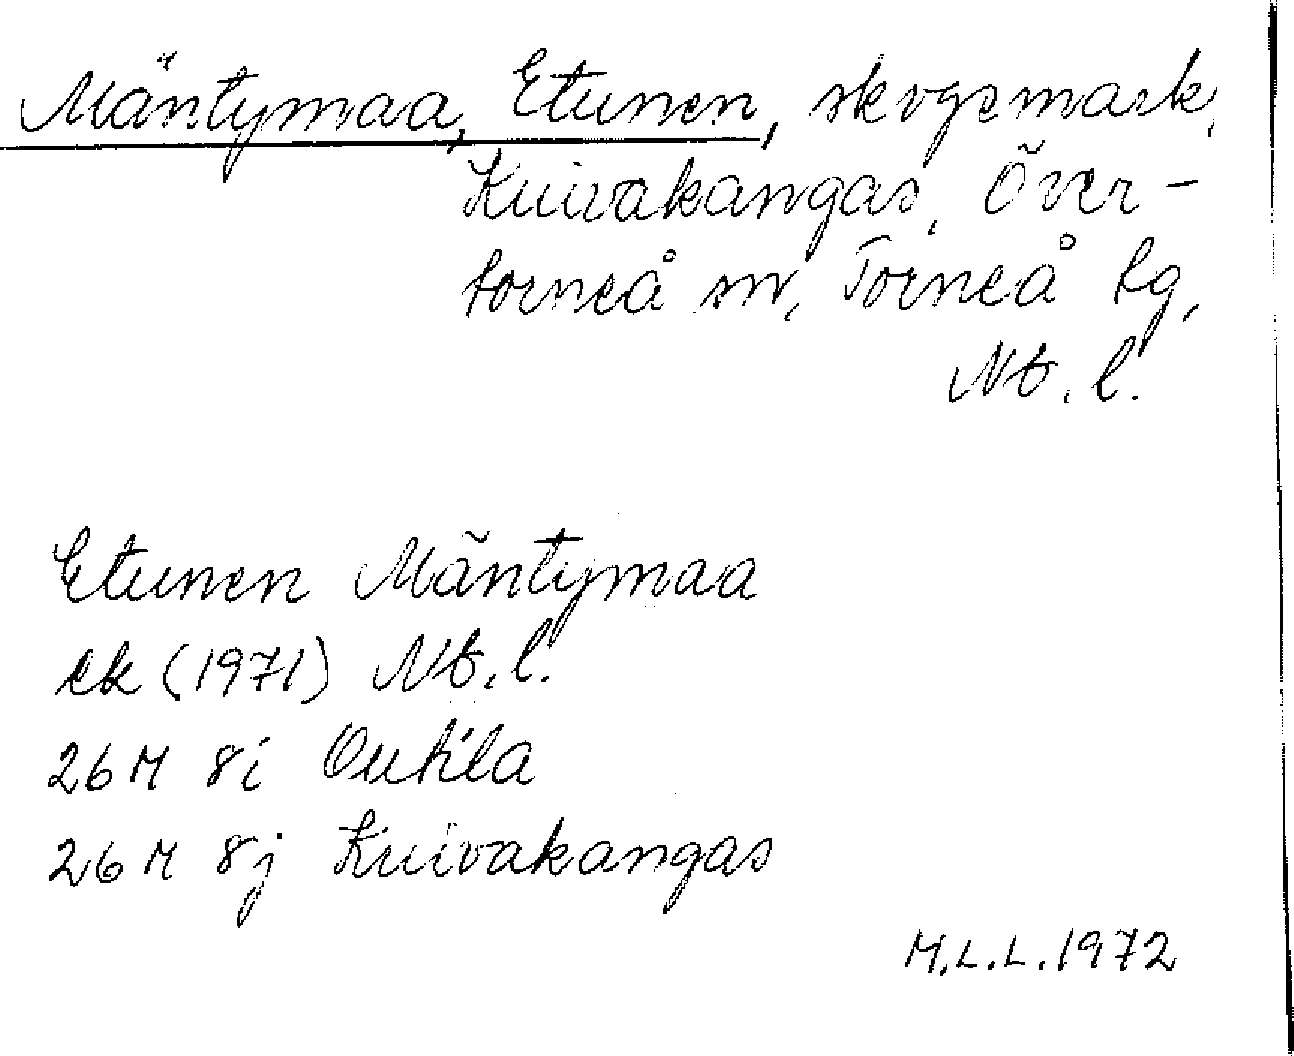 Mäntymaa, Etunen, skogsmark,
Kuivakangas, Över-
torneå sn, Torneå tg,
Nb. l.
Etunen Mäntymaa
ek (1971) Nb. l.
26 M 8i Outila
26 M 8j Kuivakangas
M.L.L. 1972